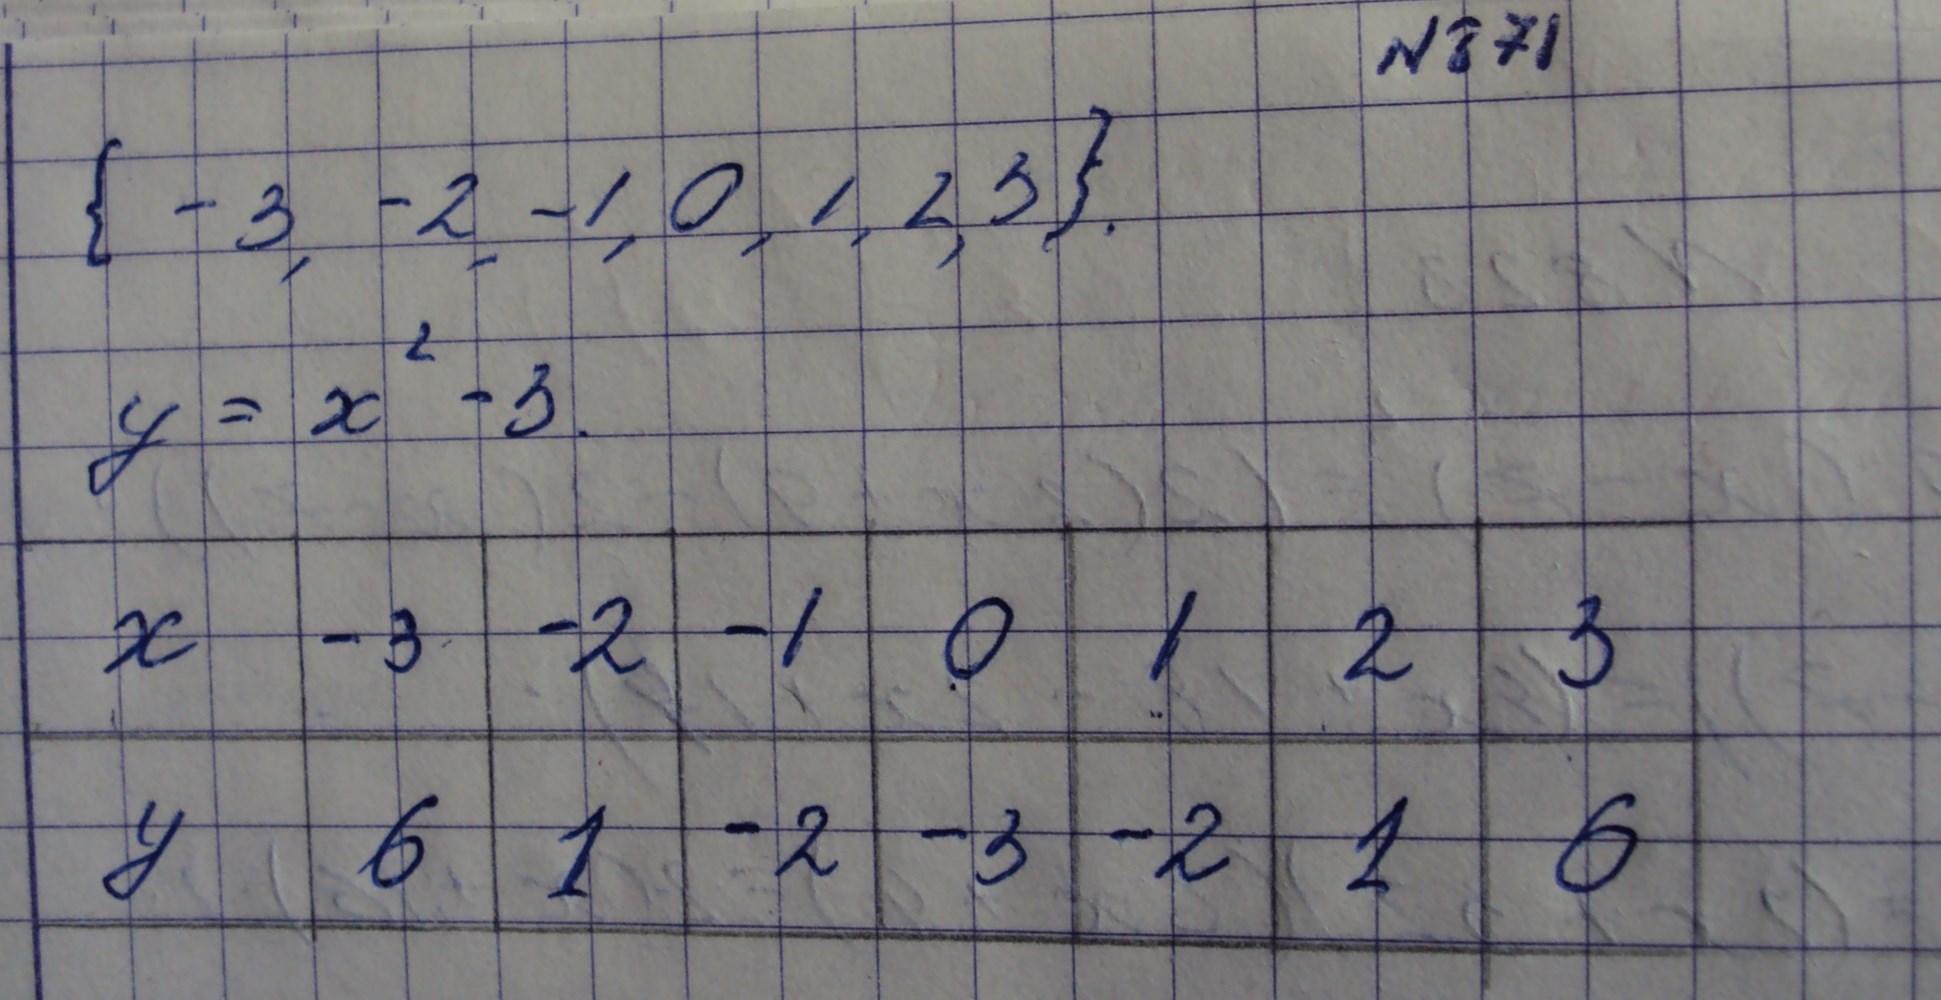 N871
{ -3, -2, -1, 0, 1, 2, 3 }.
y = x² - 3.
x -3 -2 -1 0 1 2 3
y 6 1 -2 -3 -2 1 6